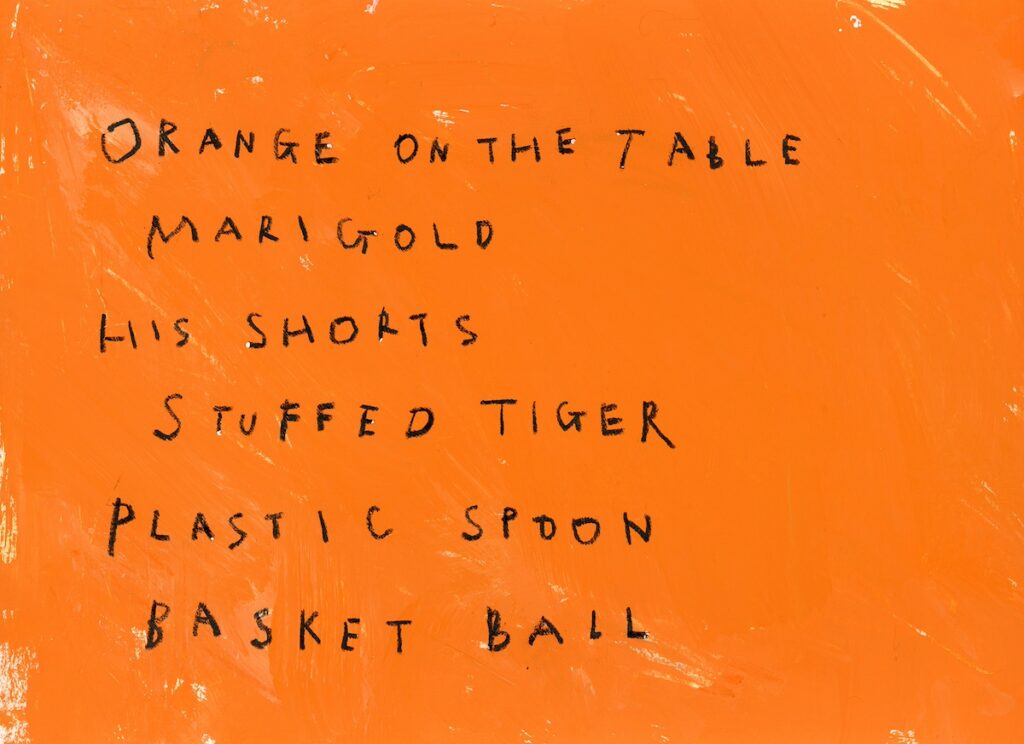 ORANGE ON THE TABLE
MARIGOLD
HIS SHORTS
STUFFED TIGER
PLASTIC SPOON
BASKET BALL